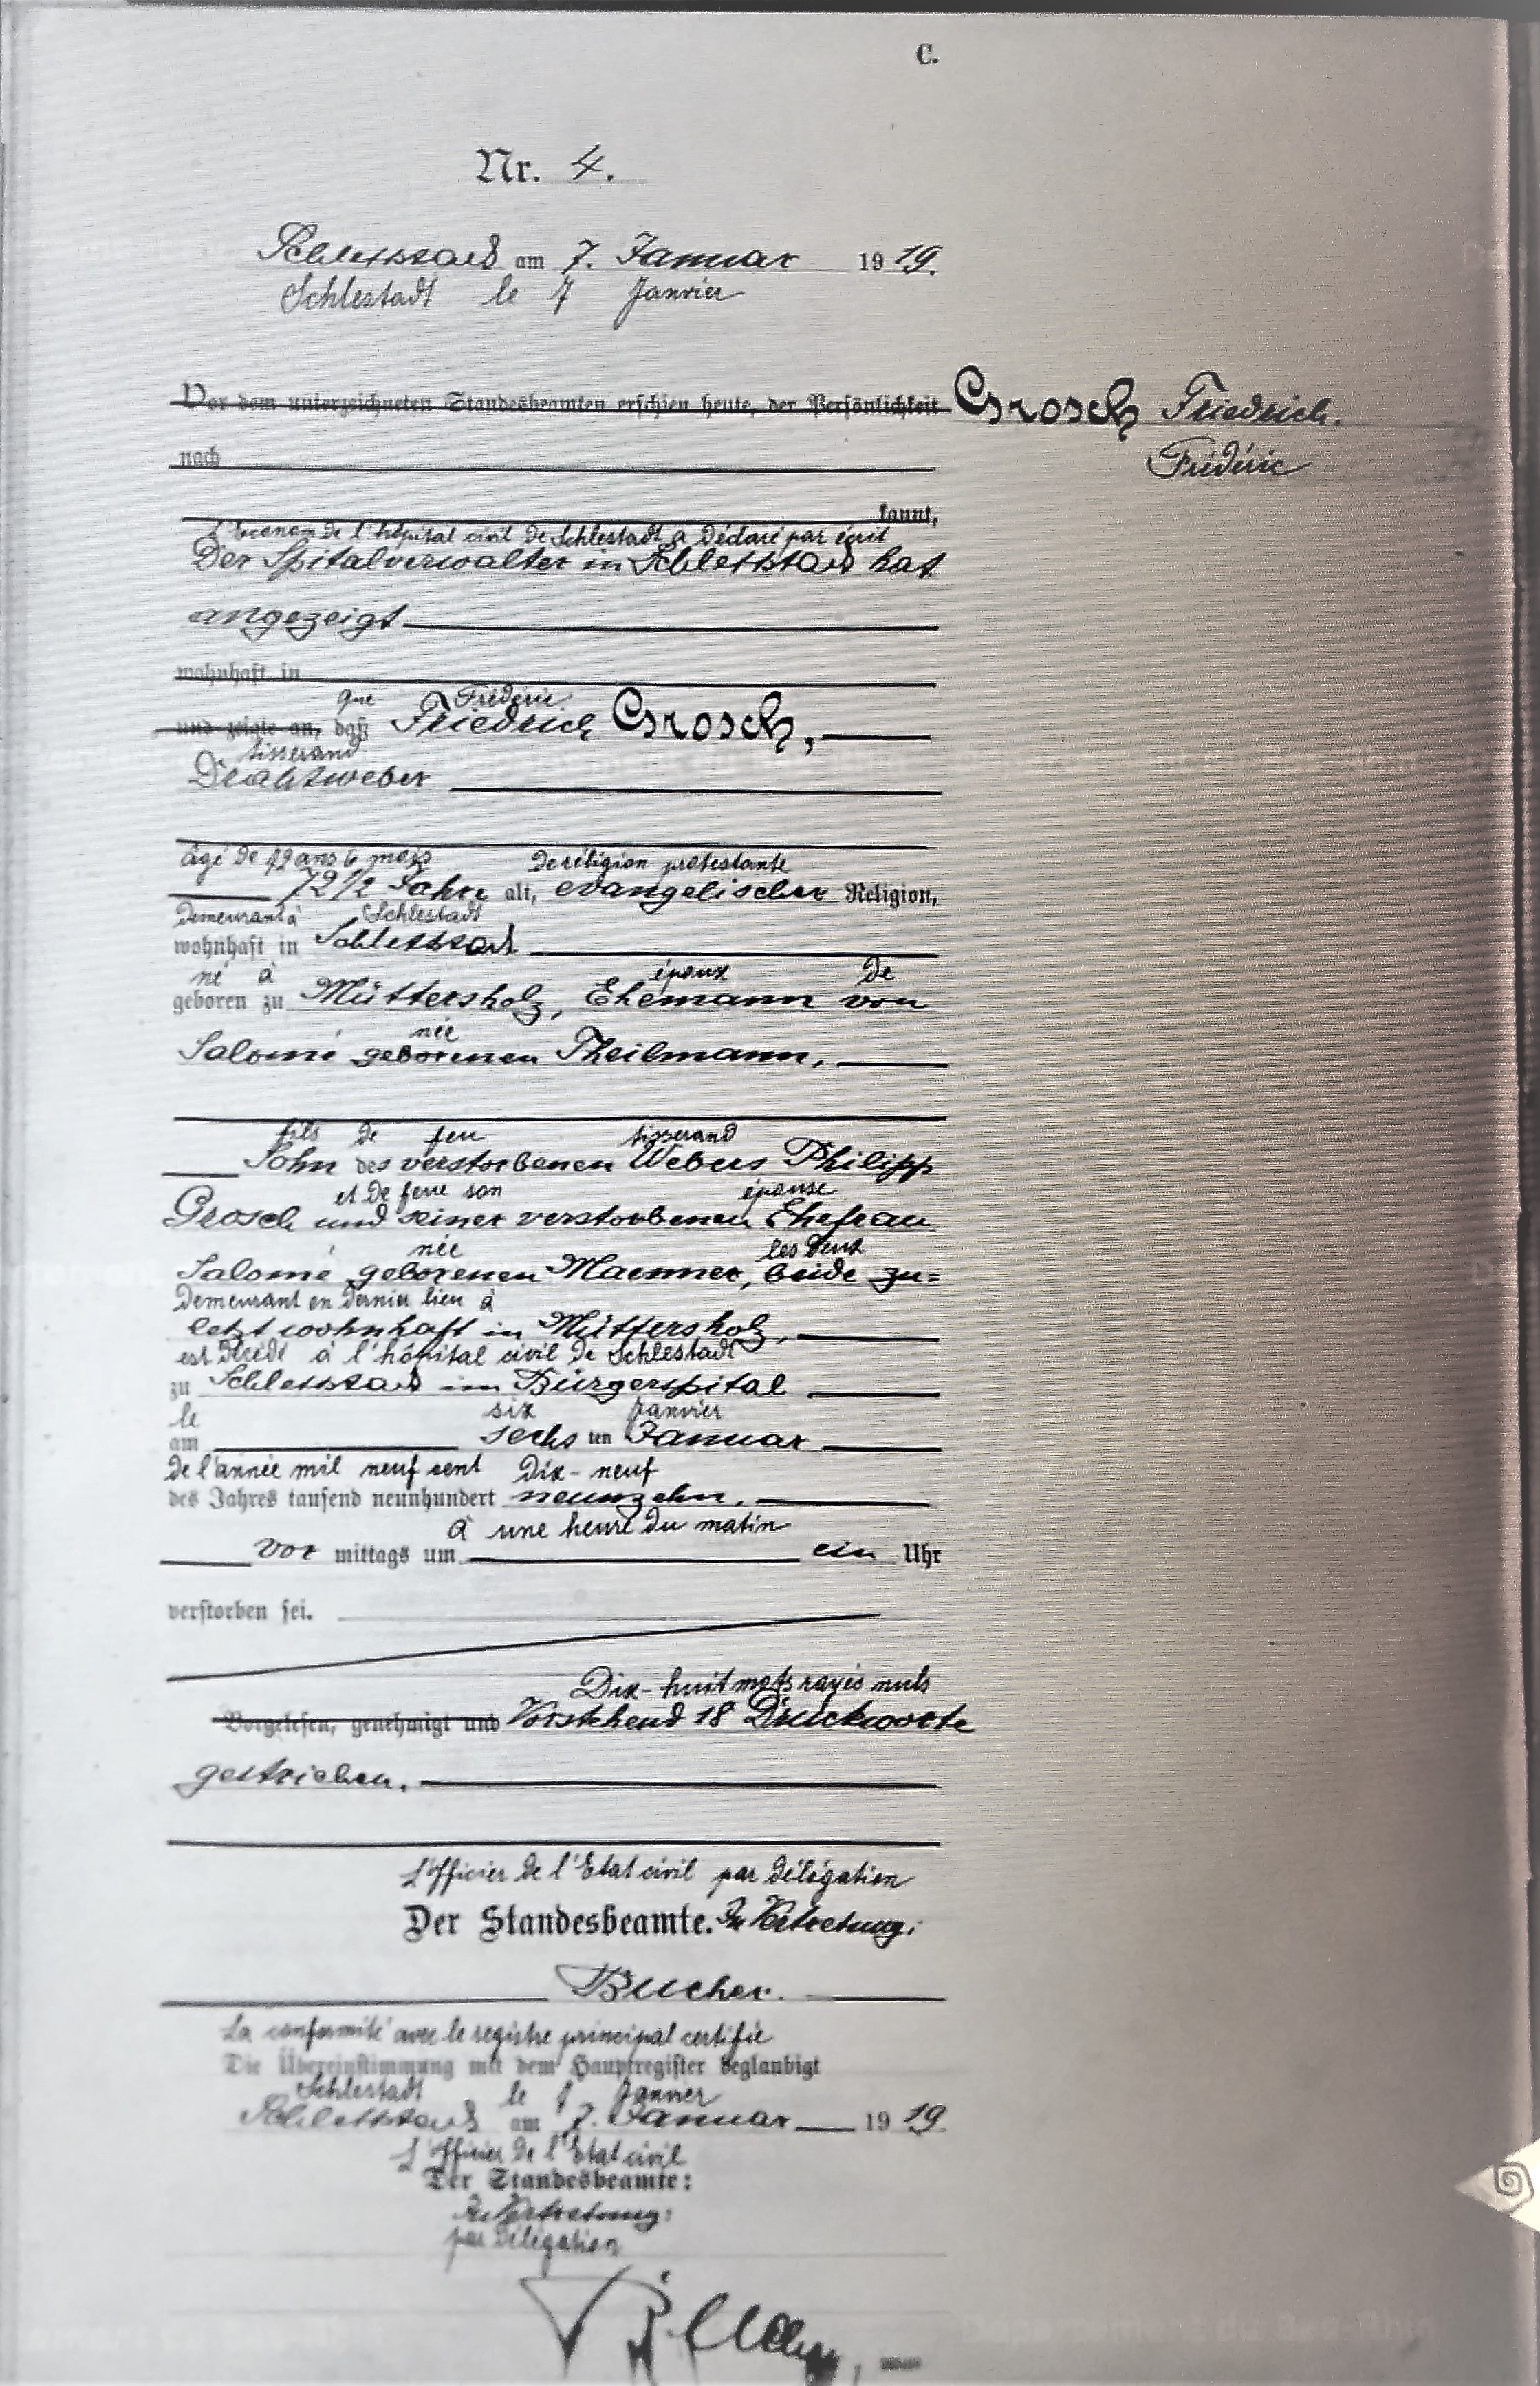 C.
Nr. 4.
Schlettstadt am 7. Januar 1919.
Schlestadt le 7 Janvier
Vor dem unterzeichneten Standesbeamten erschien heute, der Persönlichkeit
Grosch Friedrich.
Frédéric
nach
kannt,
l'économe de l'hôpital civil de Schlestadt a déclaré par écrit
Der Spitalverwalter in Schlettstadt hat
angezeigt
wohnhaft in
que Frédéric
und zeigte an, daß Friedrich Grosch,
tisserand
Drahtweber
âgé de 72 ans 6 mois de réligion protestante
72 1/2 Jahre alt, evangelischer Religion,
demeurant à Schlestadt
wohnhaft in Schlettstadt
né à époux de
geboren zu Müttersholz, Ehemann von
née
Salomé geborenen Theilmann,
fils de feu tisserand
Sohn des verstorbenen Webers Philipp
et de feue son épouse
Grosch und seiner verstorbenen Ehefrau
née les deux
Salomé geborenen Maenner, beide zu=
demeurant en dernier lieu à
letzt wohnhaft in Müttersholz,
est décédé à l'hôpital civil de Schlestadt
zu Schlettstadt im Bürgerspital
le six Janvier
am sechs ten Januar
de l'année mil neuf cent dix-neuf
des Jahres tausend neunhundert neunzehn,
à une heure du matin
vor mittags um ein Uhr
verstorben sei.
Dix-huit mots rayés nuls
Vorgelesen, genehmigt und Vorstehend 18 Druckworte
gestrichen.
L'Officier de l'Etat civil par délégation
Der Standesbeamte. In Vertretung:
Bucher.
La conformité avec le registre principal certifie
Die Übereinstimmung mit dem Hauptregister beglaubigt
Schlestadt le 7 Janvier
Schlettstadt am 7. Januar 1919.
L'Officier de l'Etat civil
Der Standesbeamte:
In Vertretung:
par délégation